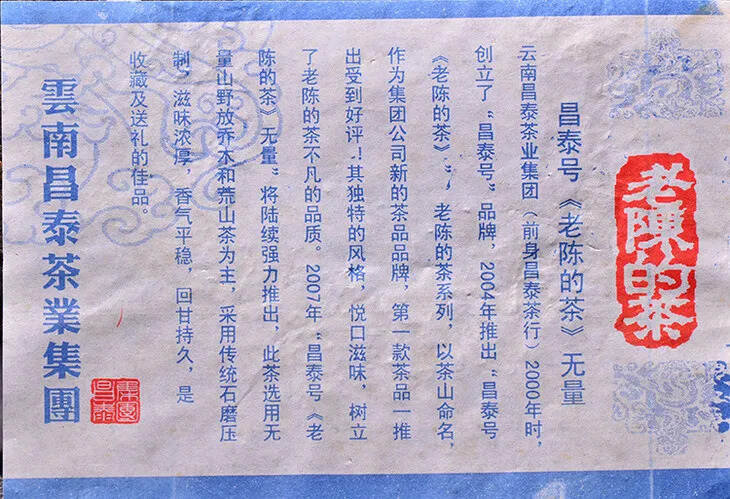 老陳的茶
昌泰号《老陈的茶》无量
云南昌泰茶业集团（前身昌泰茶行）2000年时，
创立了“昌泰号”品牌，2004年推出“昌泰号
《老陈的茶》”，老陈的茶系列，以茶山命名，
作为集团公司新的茶品品牌，第一款茶品一推
出受到好评！其独特的风格，悦口滋味，树立
了老陈的茶不凡的品质。2007年“昌泰号《老
陈的茶》无量”将陆续强力推出，此茶选用无
量山野放乔木和荒山茶为主，采用传统石磨压
制，滋味浓厚，香气平稳，回甘持久，是
收藏及送礼的佳品。
雲南昌泰茶業集團
昌泰集團